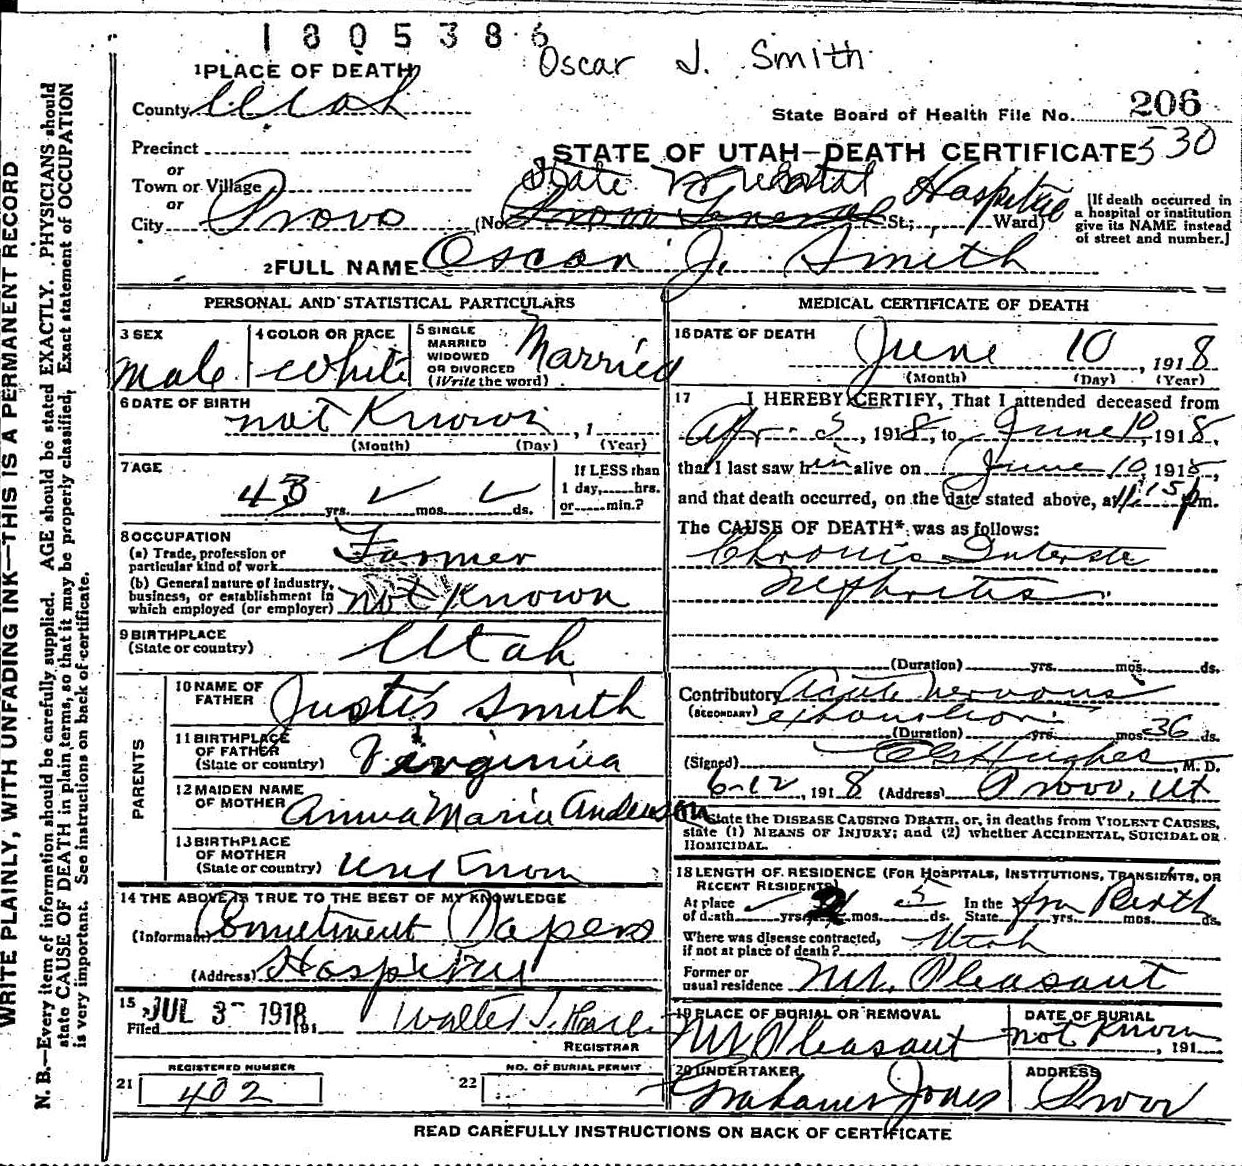 1805386
Oscar J. Smith
1 PLACE OF DEATH
County Utah
State Board of Health File No. 206
Precinct
STATE OF UTAH—DEATH CERTIFICATE 530
or
Town or Village
State Mental Hospital
or
City Provo (No. Provo General St; Ward)
[If death occurred in
a hospital or institution
give its NAME instead
of street and number.]
2 FULL NAME Oscar J. Smith
PERSONAL AND STATISTICAL PARTICULARS
3 SEX
Male
4 COLOR OR RACE
White
5 SINGLE
MARRIED
WIDOWED
OR DIVORCED
(Write the word)
Married
6 DATE OF BIRTH
not Known, 1
(Month) (Day) (Year)
7 AGE
43 yrs. mos. ds.
If LESS than
1 day, hrs.
or min.?
8 OCCUPATION
(a) Trade, profession or
particular kind of work
Farmer
(b) General nature of industry,
business, or establishment in
which employed (or employer)
not Known
9 BIRTHPLACE
(State or country)
Utah
PARENTS
10 NAME OF
FATHER
Justis Smith
11 BIRTHPLACE
OF FATHER
(State or country)
Virginia
12 MAIDEN NAME
OF MOTHER
Anna Maria Anderson
13 BIRTHPLACE
OF MOTHER
(State or country)
unknown
14 THE ABOVE IS TRUE TO THE BEST OF MY KNOWLEDGE
(Informant) Comitment Papers
(Address) Hospital
15
Filed JUL 3- 1918 191
Walter T.
REGISTRAR
REGISTERED NUMBER
21 402
NO. OF BURIAL PERMIT
22
MEDICAL CERTIFICATE OF DEATH
16 DATE OF DEATH
June 10, 1918
(Month) (Day) (Year)
17 I HEREBY CERTIFY, That I attended deceased from
Apr. 5, 1918, to June 10, 1918,
that I last saw him alive on June 10, 1918,
and that death occurred, on the date stated above, at 11:15 p m.
The CAUSE OF DEATH* was as follows:
Chronic Interste
Nephritis
(Duration) yrs. mos. ds.
Contributory Acute nervous
(SECONDARY) exhaustion
(Duration) yrs. mos. 36 ds.
(Signed) Hughes, M. D.
6-12, 1918 (Address) Provo, Ut
State the DISEASE CAUSING DEATH, or, in deaths from VIOLENT CAUSES,
state (1) MEANS OF INJURY; and (2) whether ACCIDENTAL, SUICIDAL OR
HOMICIDAL.
18 LENGTH OF RESIDENCE (FOR HOSPITALS, INSTITUTIONS, TRANSIENTS, OR
RECENT RESIDENTS)
At place
of death yrs. 2 mos. 5 ds.
In the
State from Birth yrs. mos. ds.
Where was disease contracted,
if not at place of death? Utah
Former or
usual residence Mt. Pleasant
19 PLACE OF BURIAL OR REMOVAL
Mt Pleasant
DATE OF BURIAL
not Known, 191
20 UNDERTAKER
Grahames Jones
ADDRESS
Provo
READ CAREFULLY INSTRUCTIONS ON BACK OF CERTIFICATE
WRITE PLAINLY, WITH UNFADING INK—THIS IS A PERMANENT RECORD
N. B.—Every item of information should be carefully supplied. AGE should be stated EXACTLY. PHYSICIANS should
state CAUSE OF DEATH in plain terms, so that it may be properly classified. Exact statement of OCCUPATION
is very important. See instructions on back of certificate.